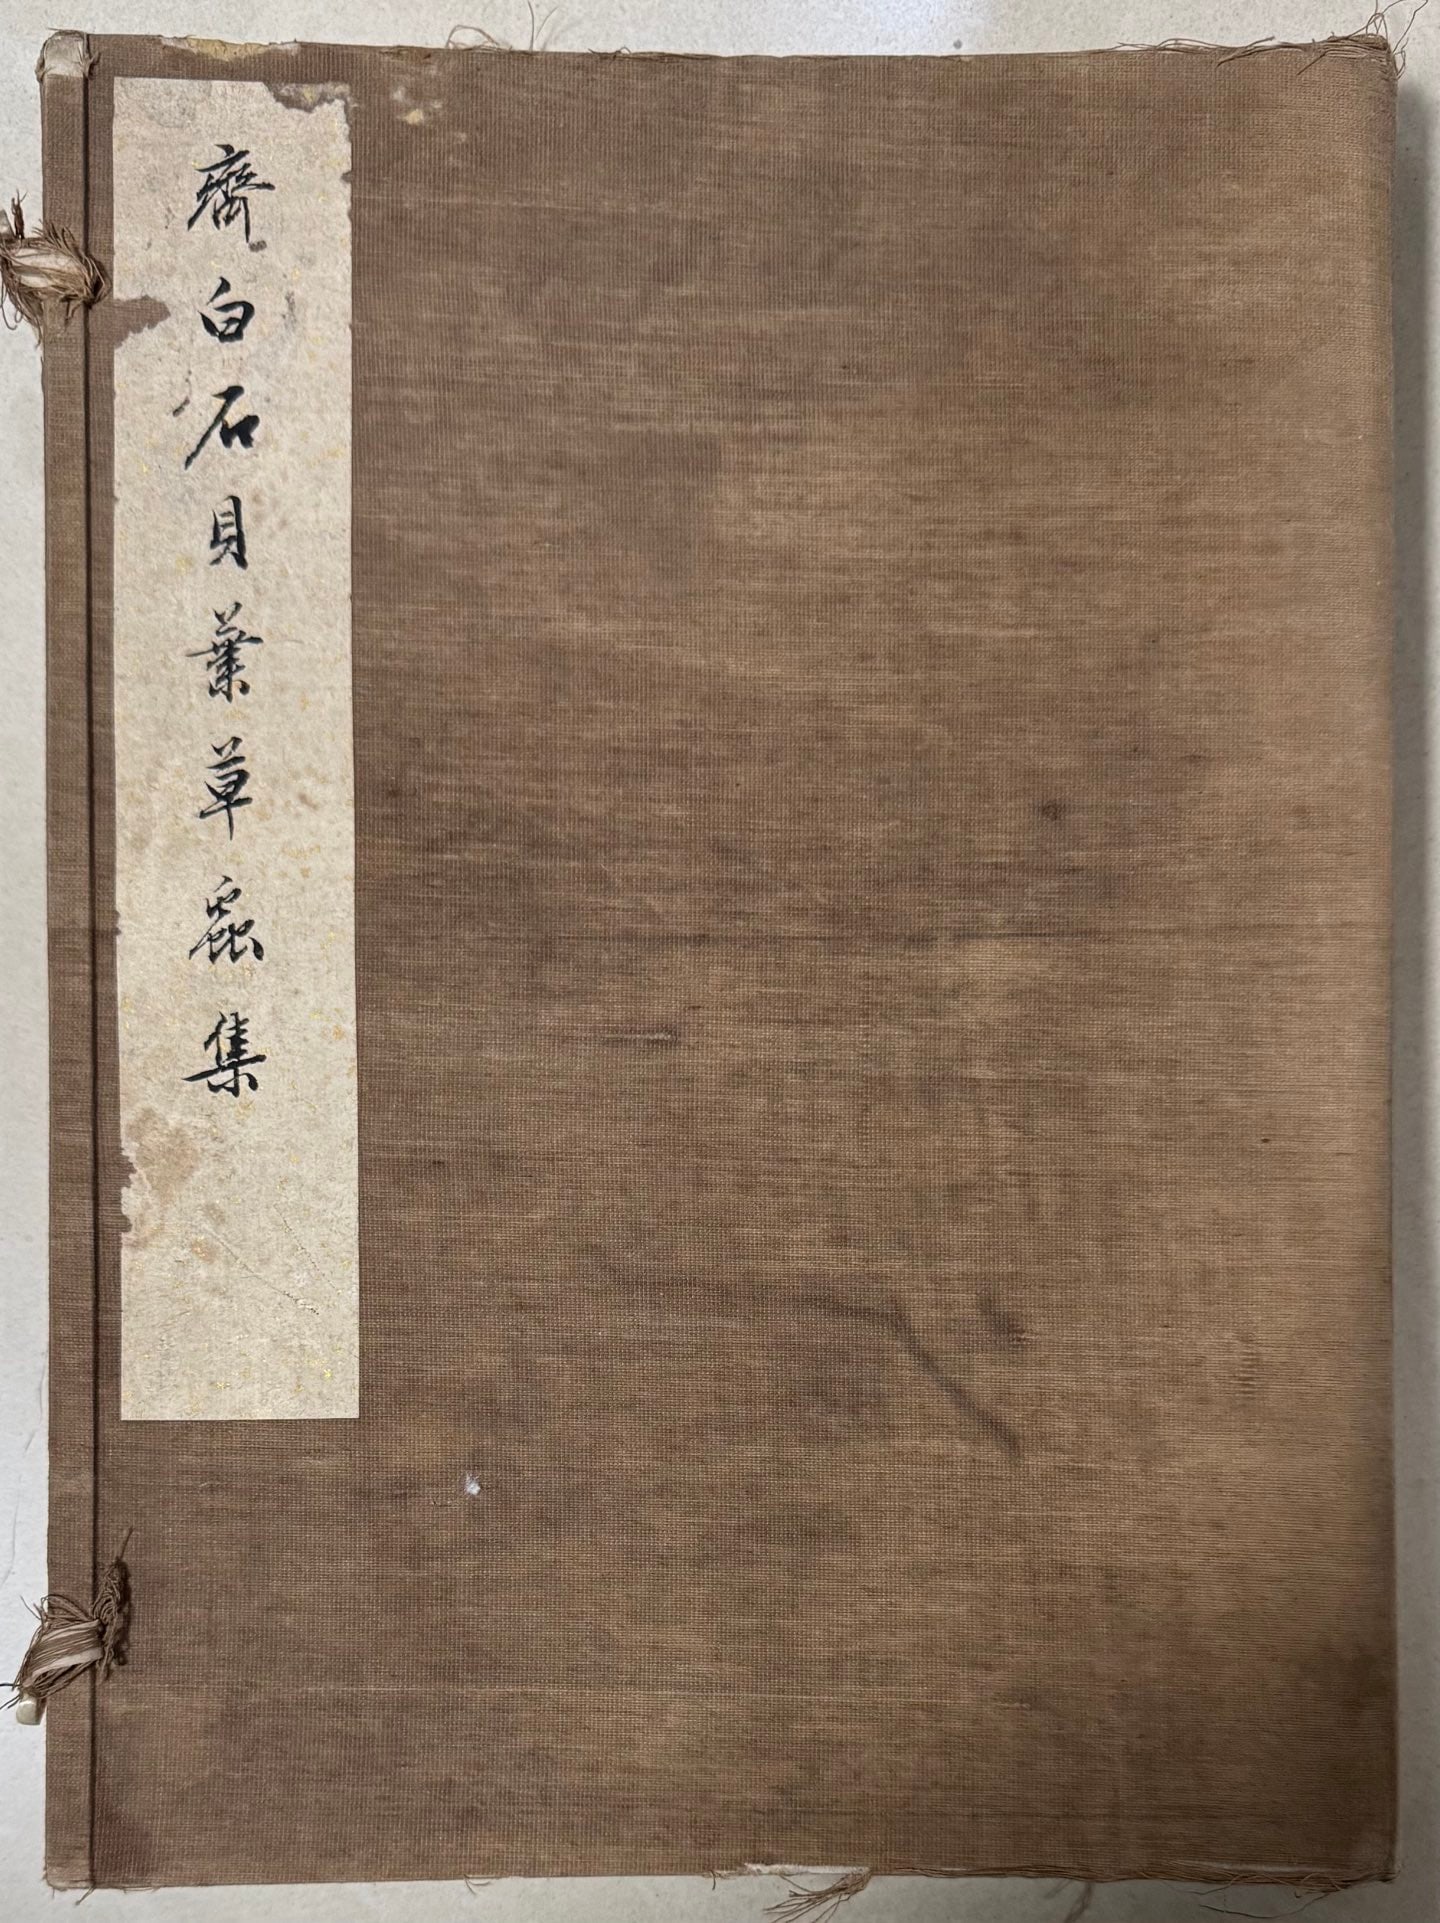 齊白石貝葉草蟲集